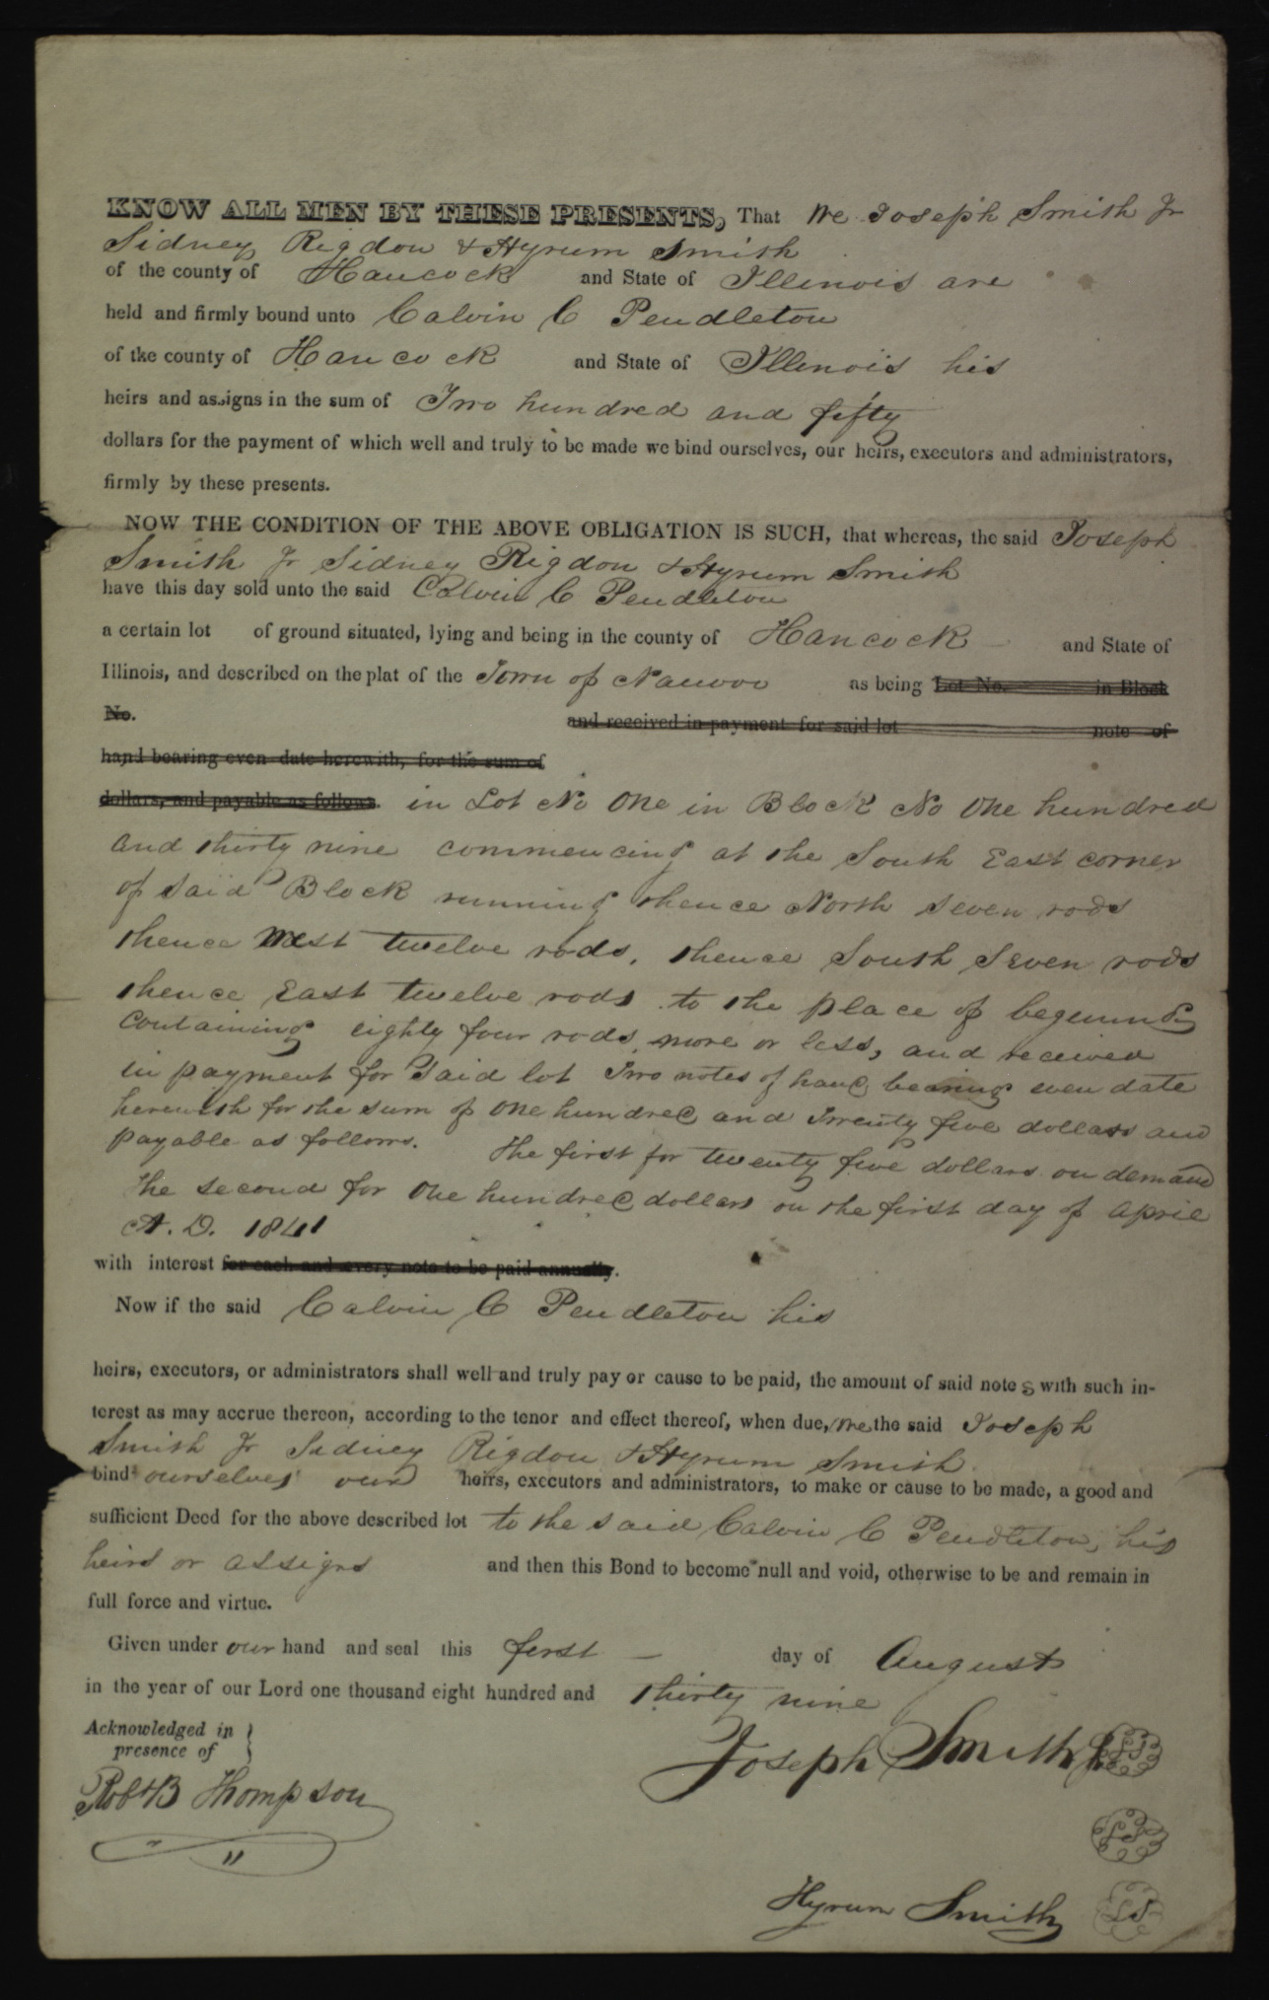 KNOW ALL MEN BY THESE PRESENTS, That We Joseph Smith Jr
Sidney Rigdon & Hyrum Smith
of the county of Hancock and State of Illinois are
held and firmly bound unto Calvin C Pendleton
of tke county of Hancock and State of Illinois his
heirs and assigns in the sum of Two hundred and fifty
dollars for the payment of which well and truly to be made we bind ourselves, our heirs, executors and administrators,
firmly by these presents.
NOW THE CONDITION OF THE ABOVE OBLIGATION IS SUCH, that whereas, the said Joseph
Smith Jr Sidney Rigdon & Hyrum Smith
have this day sold unto the said Calvin C Pendleton
a certain lot of ground situated, lying and being in the county of Hancock and State of
Illinois, and described on the plat of the Town of Nauvoo as being Lot No. in Block
No. and received in payment for said lot note of
hand bearing even date herewith, for the sum of
dollars, and payable as follows. in Lot No One in Block No One hundred
and thirty nine commencing at the South East corner
of said Block running thence North seven rods
thence West twelve rods, thence South Seven rods
thence East twelve rods to the place of begening
Containing eighty four rods, more or less, and received
in payment for said lot Two notes of hand bearing even date
herewith for the sum of One hundred and Twenty five dollars and
payable as follows. The first for twenty five dollars on demand
the second for One hundred dollars on the first day of April
A. D. 1841
with interest for each and every note to be paid annually.
Now if the said Calvin C Pendleton his
heirs, executors, or administrators shall well and truly pay or cause to be paid, the amount of said note s with such in-
terest as may accrue thereon, according to the tenor and effect thereof, when due, we the said Joseph
Smith Jr Sidney Rigdon & Hyrum Smith
bind ourselves our heirs, executors and administrators, to make or cause to be made, a good and
sufficient Deed for the above described lot to the said Calvin C Pendleton, his
heirs or assigns and then this Bond to become null and void, otherwise to be and remain in
full force and virtue.
Given under our hand and seal this first day of August
in the year of our Lord one thousand eight hundred and thirty nine
Acknowledged in
presence of
Joseph Smith Jr LS
Robt B Thompson
LS
Hyrum Smith LS